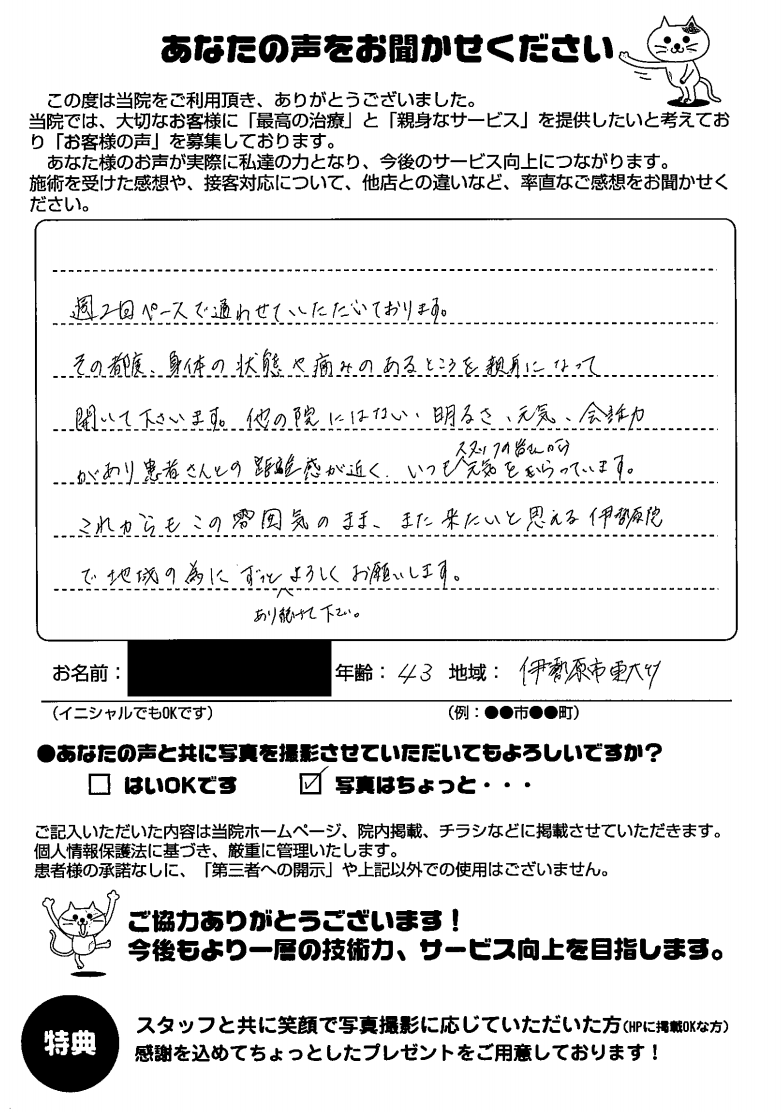 あなたの声をお聞かせください
この度は当院をご利用頂き、ありがとうございました。
当院では、大切なお客様に「最高の治療」と「親身なサービス」を提供したいと考えてお
り「お客様の声」を募集しております。
あなた様のお声が実際に私達の力となり、今後のサービス向上につながります。
施術を受けた感想や、接客対応について、他店との違いなど、率直なご感想をお聞かせく
ださい。
週2回ペースで通わせていただいております。
その都度、身体の状態や痛みのあるところを親身になって
聞いて下さいます。他の院にはない、明るさ、元気、会話力
スタッフの皆さんから
があり患者さんとの距離感が近く、いつも元気をもらっています。
これからもこの雰囲気のまま、また来たいと思える伊勢原院
で地域の為にずっとよろしくお願いします。
あり続けて下さい。
お名前： 年齢：43 地域：伊勢原市東大竹
（イニシャルでもOKです） （例：●●市●●町）
●あなたの声と共に写真を撮影させていただいてもよろしいですか？
□ はいOKです ☑ 写真はちょっと・・・
ご記入いただいた内容は当院ホームページ、院内掲載、チラシなどに掲載させていただきます。
個人情報保護法に基づき、厳重に管理いたします。
患者様の承諾なしに、「第三者への開示」や上記以外での使用はございません。
ご協力ありがとうございます！
今後もより一層の技術力、サービス向上を目指します。
特典
スタッフと共に笑顔で写真撮影に応じていただいた方(HPに掲載OKな方)
感謝を込めてちょっとしたプレゼントをご用意しております！